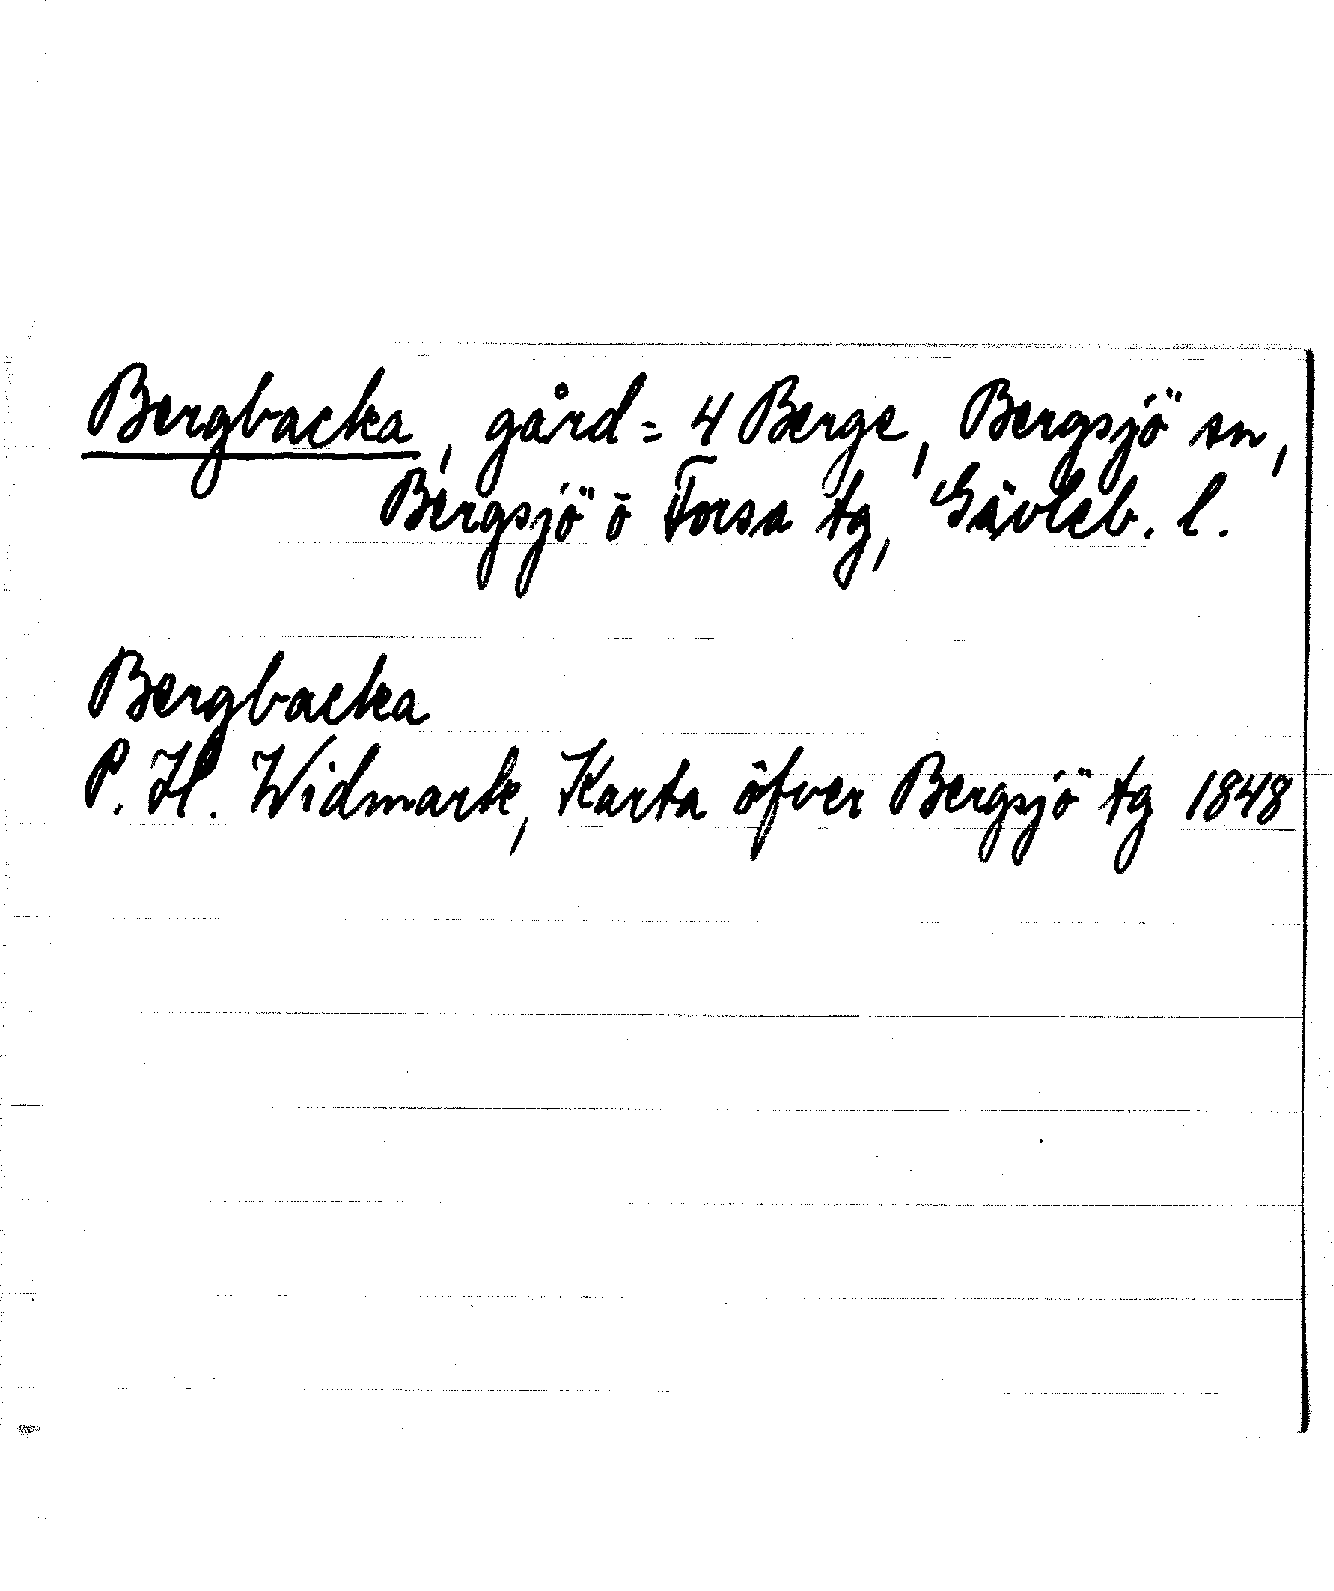 Bergbacka, gård = 4 Berge, Bergsjö sn,
Bergsjö o Forsa tg, Gävleb. l.
Bergbacka
P. H. Widmark, Karta öfver Bergsjö tg 1848